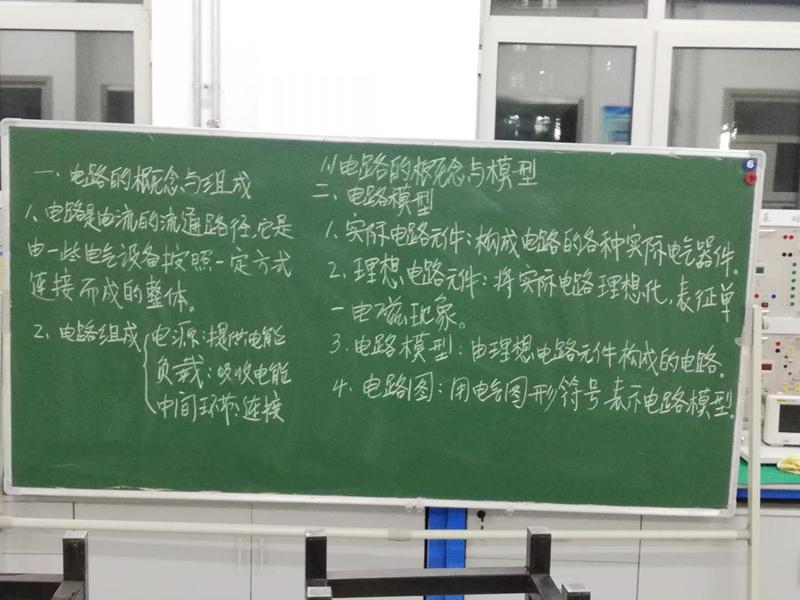 1.1 电路的概念与模型
一、电路的概念与组成
1、电路是电流的流通路径,它是
由一些电气设备按照一定方式
连接而成的整体。
2、电路组成
电源:提供电能
负载:吸收电能
中间环节:连接
二、电路模型
1、实际电路元件:构成电路的各种实际电气器件。
2、理想电路元件:将实际电路理想化,表征单
一电磁现象。
3、电路模型:由理想电路元件构成的电路。
4、电路图:用电气图形符号表示电路模型。
6